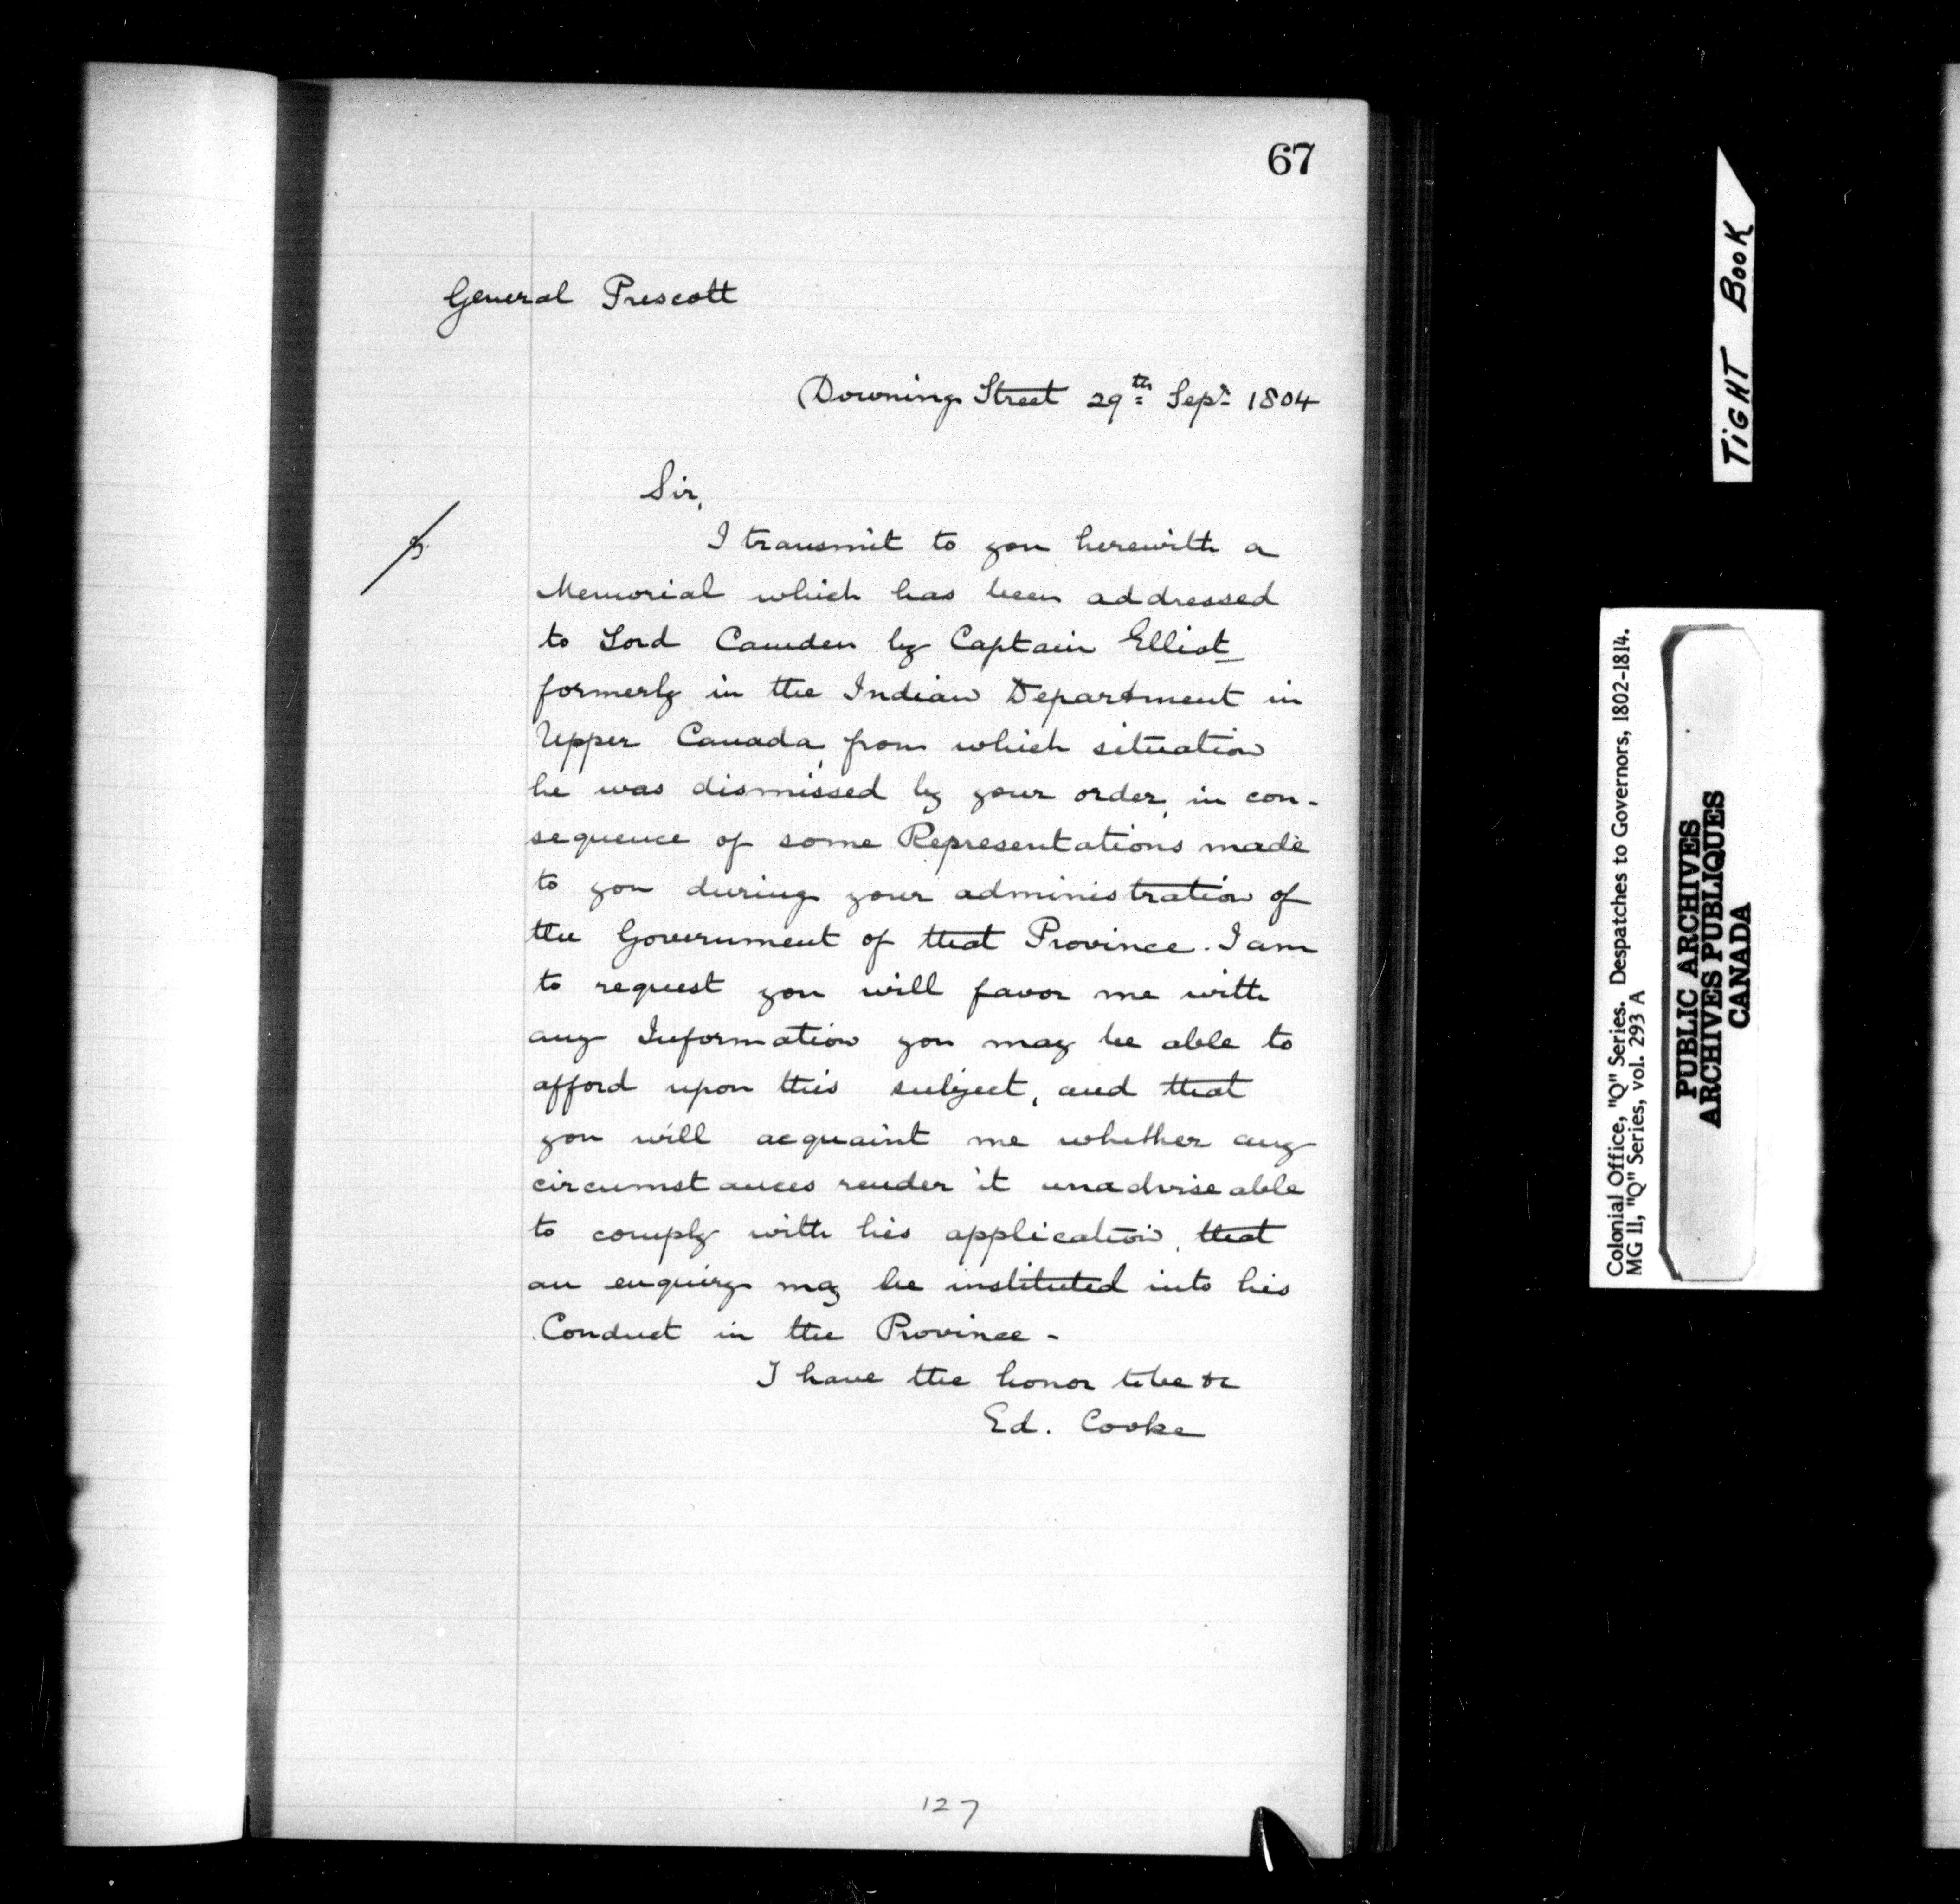 67
General Prescott
Downing Street 29th Sepr 1804
Sir,
I transmit to you herewith a
Memorial which has been addressed
to Lord Camden by Captain Elliot
formerly in the Indian Department in
Upper Canada, from which situation
he was dismissed by your order, in con-
sequence of some Representations made
to you during your administration of
the Government of that Province. I am
to request you will favor me with
any Information you may be able to
afford upon this subject, and that
you will acquaint me whether any
circumstances render it unadviseable
to comply with his application, that
an enquiry may be instituted into his
Conduct in the Province -
I have the honor to be &c
Ed. Cooke
127
TIGHT BOOK
Colonial Office, "Q" Series. Despatches to Governors, 1802-1814.
MG 11, "Q" Series, vol. 293 A
PUBLIC ARCHIVES
ARCHIVES PUBLIQUES
CANADA